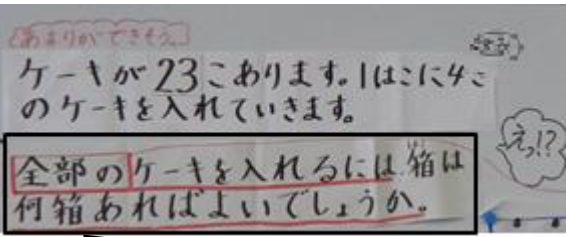 あまりができそう。
ケーキが23こあります。1はこに4こ
のケーキを入れていきます。
えっ!?
全部のケーキを入れるには箱は
何箱あればよいでしょうか。